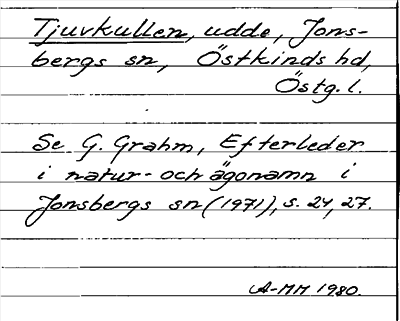 Tjuvkullen, udde, Jons-
bergs sn, Östkinds hd,
Östg. l.
Se G. Grahm, Efterleder
i natur- och ägonamn i
Jonsbergs sn (1971), s. 24, 27.
A-MM 1980.